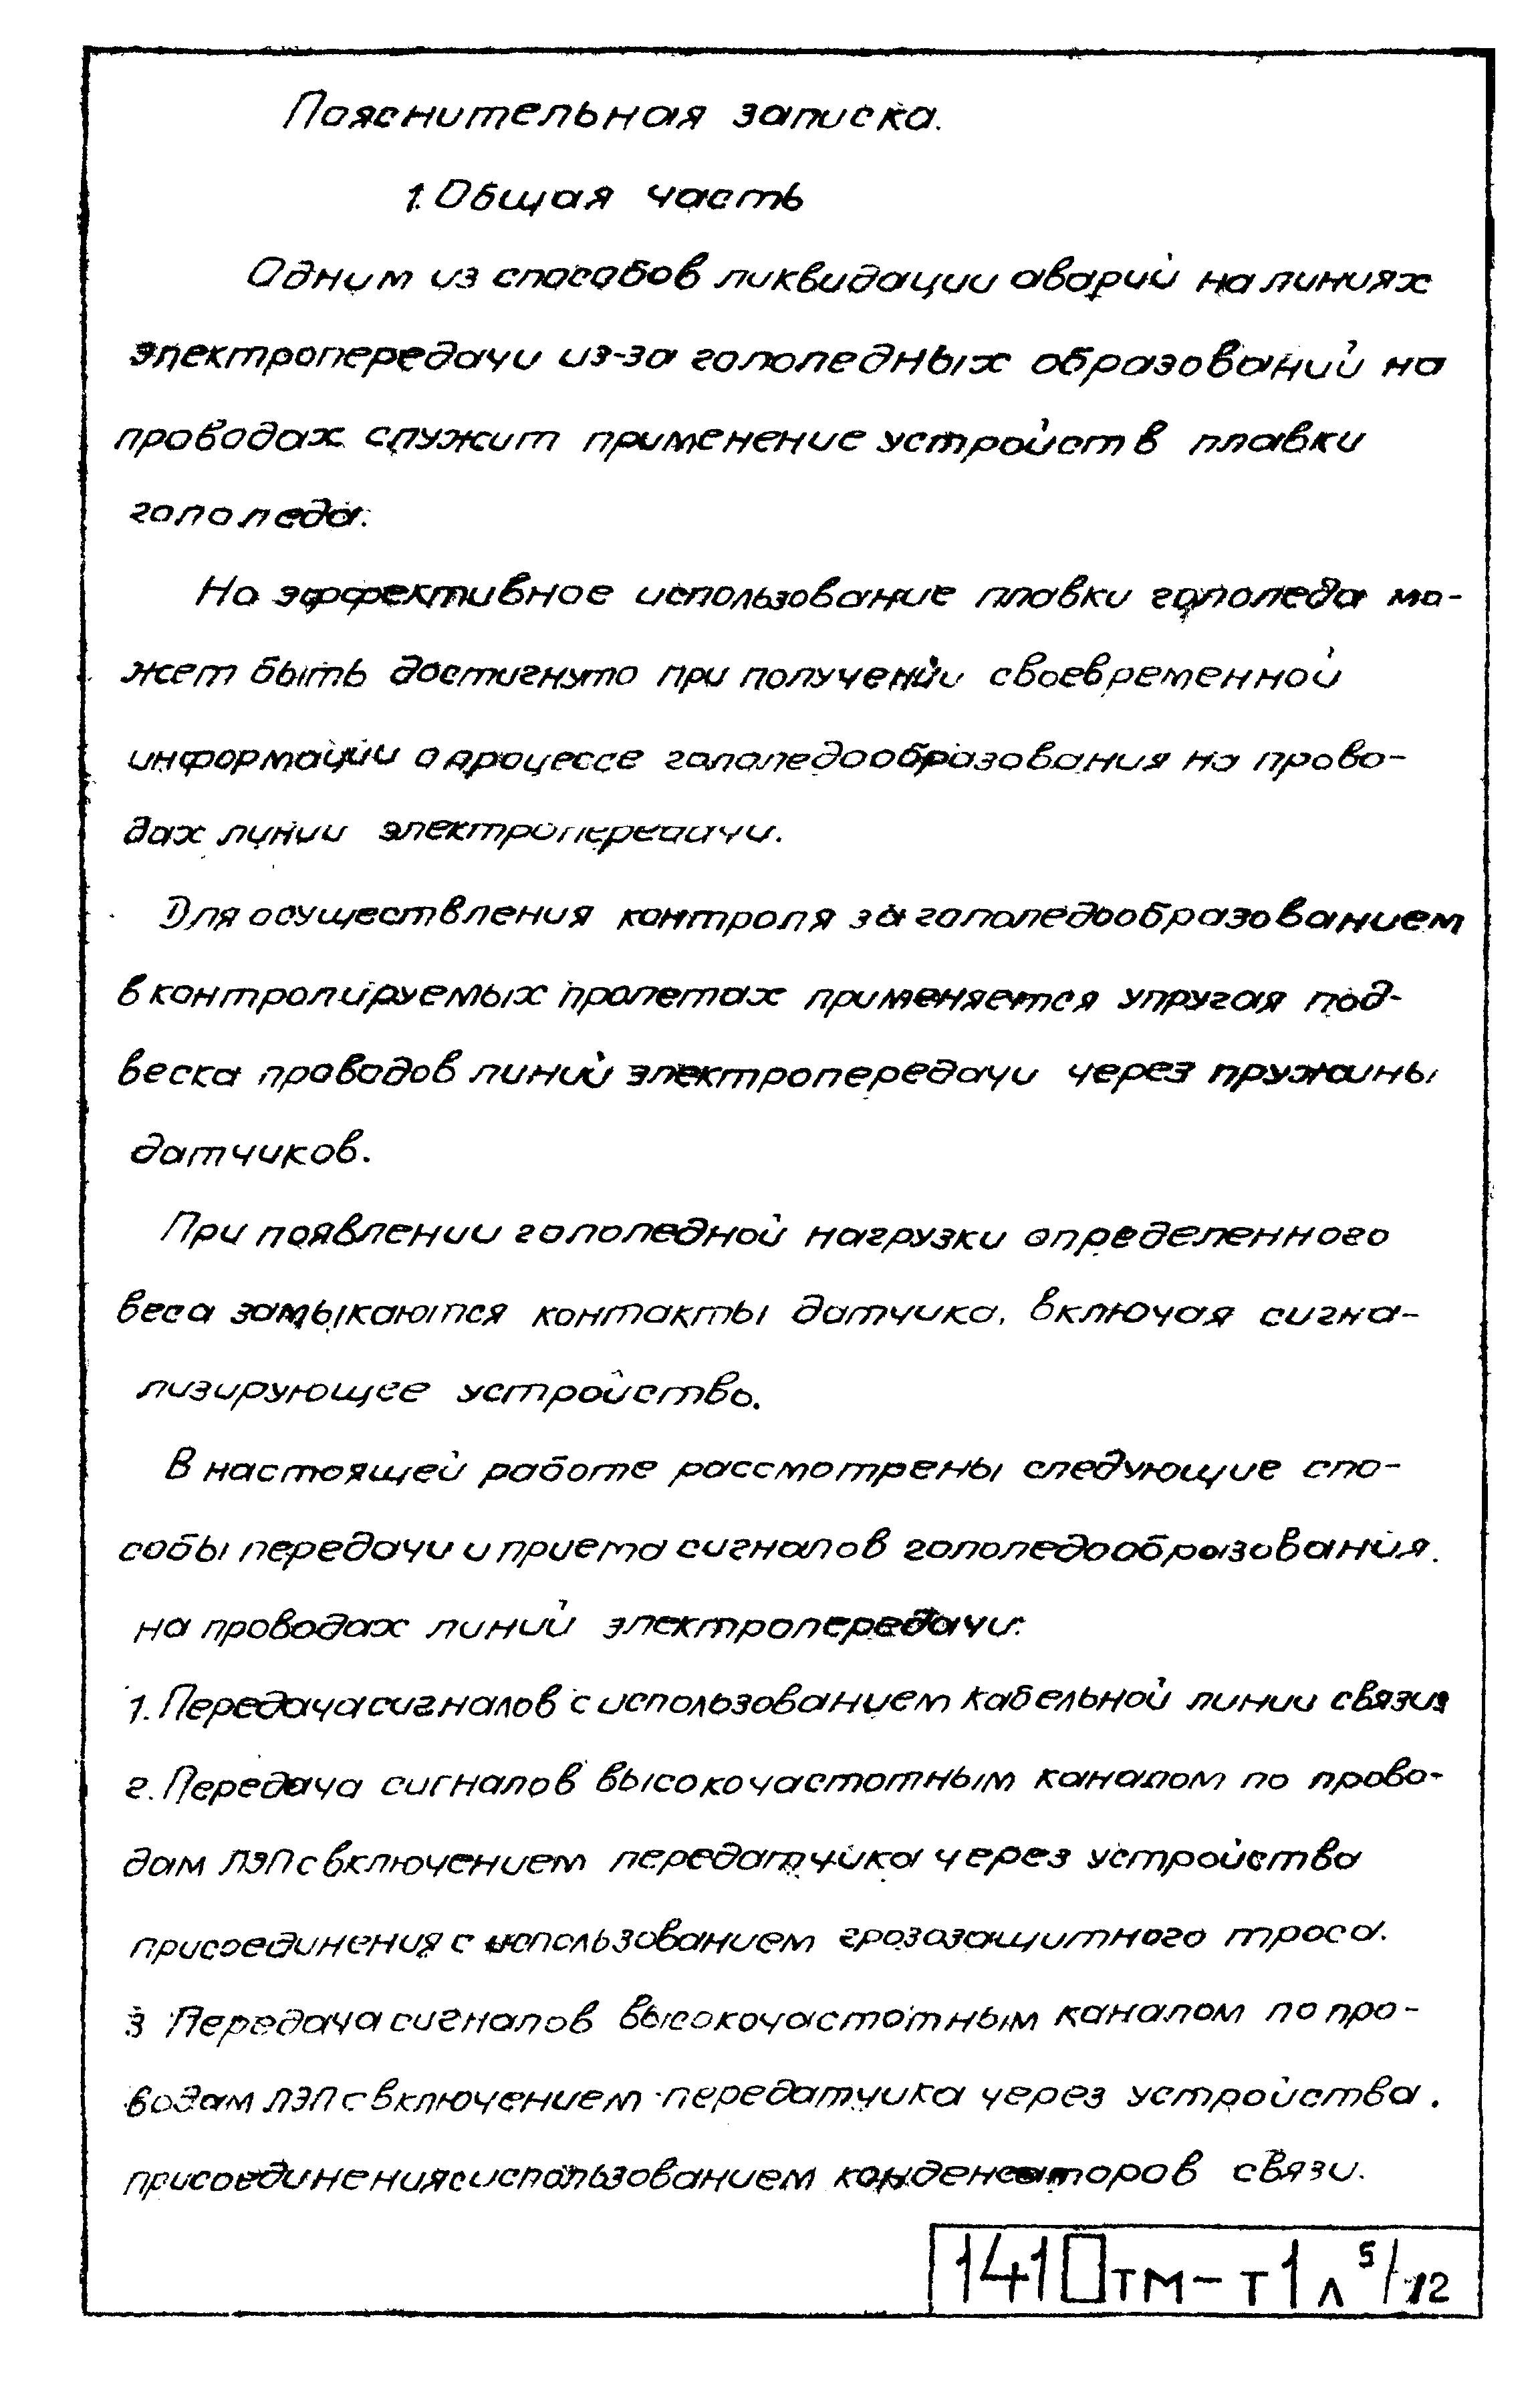 Пояснительная записка.
1. Общая часть
Одним из способов ликвидации аварий на линиях
электропередачи из-за гололедных образований на
проводах служит применение устройств плавки
гололеда.
На эффективное использование плавки гололеда мо-
жет быть достигнуто при получении своевременной
информации о процессе гололедообразования на прово-
дах линии электропередачи.
Для осуществления контроля за гололедообразованием
в контролируемых пролетах применяется упругая под-
веска проводов линий электропередачи через пружины
датчиков.
При появлении гололедной нагрузки определенного
веса замыкаются контакты датчика, включая сигна-
лизирующее устройство.
В настоящей работе рассмотрены следующие спо-
собы передачи и приема сигналов гололедообразования
на проводах линий электропередачи:
1. Передача сигналов с использованием кабельной линии связи
2. Передача сигналов высокочастотным каналом по прово-
дам ЛЭП с включением передатчика через устройства
присоединения с использованием грозозащитного троса.
3 Передача сигналов высокочастотным каналом по про-
водам ЛЭП с включением передатчика через устройства
присоединения с использованием конденсаторов связи.
1410тм-т1 л 5/12